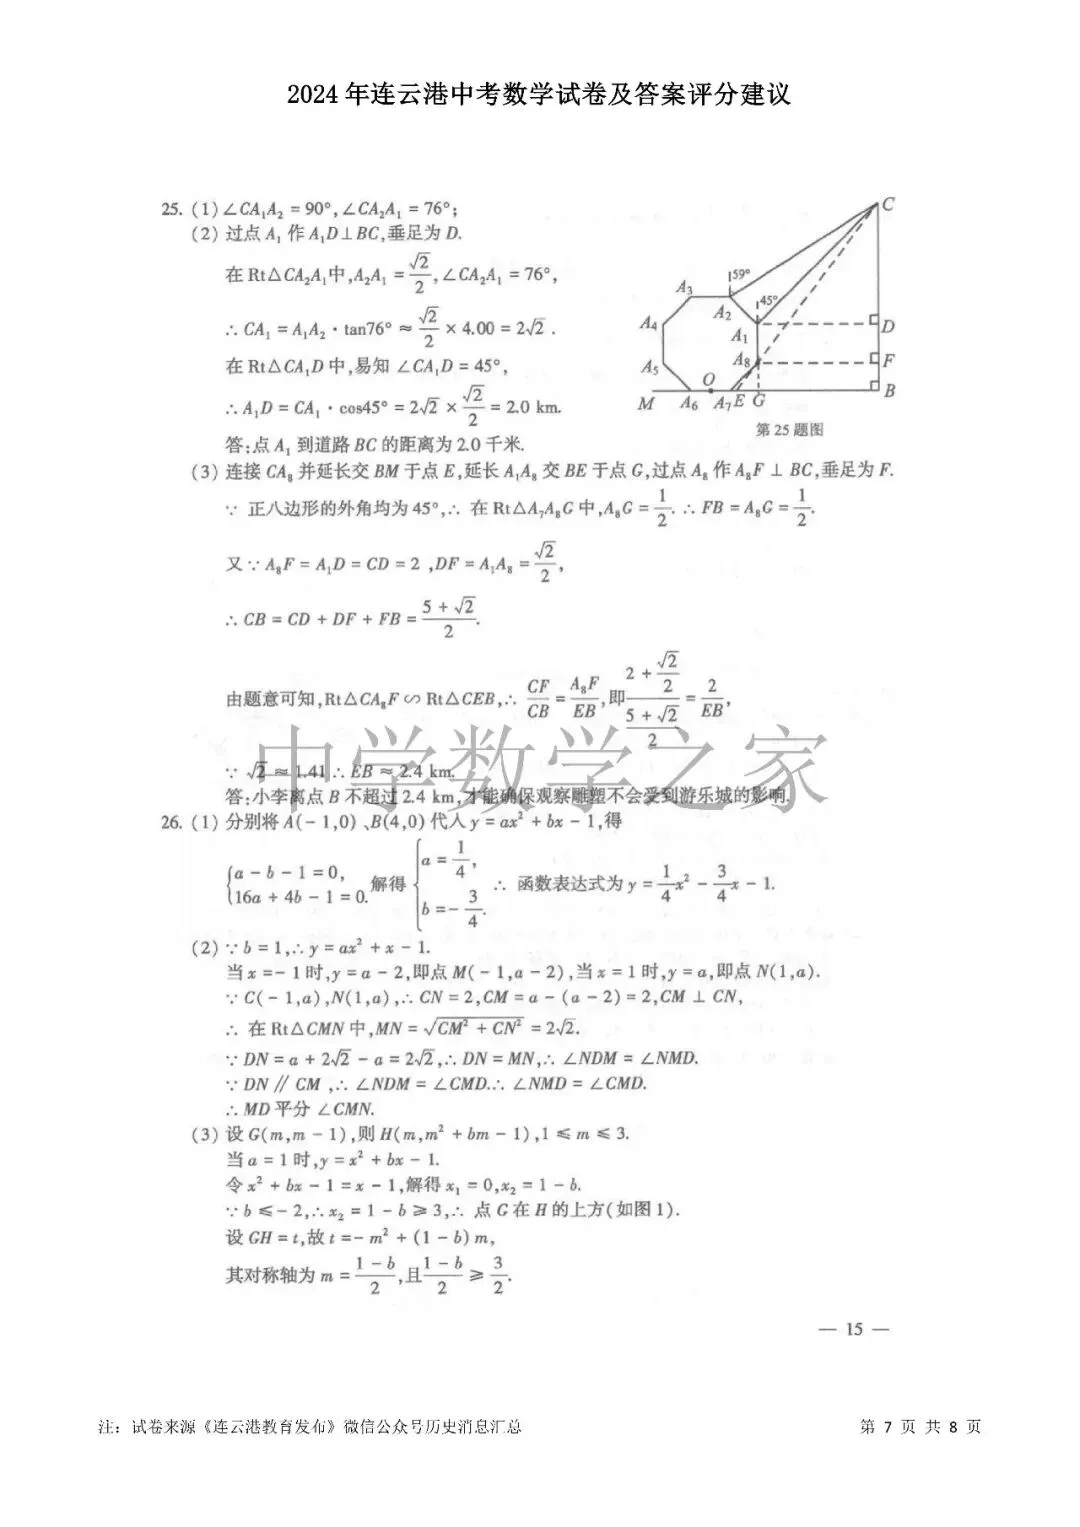 2024年连云港中考数学试卷及答案评分建议
25. (1) ∠CA₁A₂ = 90°, ∠CA₂A₁ = 76°;
(2) 过点 A₁ 作 A₁D⊥BC,垂足为 D.
在 Rt△CA₂A₁中,A₂A₁ = √2/2, ∠CA₂A₁ = 76°,
∴ CA₁ = A₁A₂ · tan76° ≈ √2/2 × 4.00 = 2√2 .
在 Rt△CA₁D 中,易知 ∠CA₁D = 45°,
∴ A₁D = CA₁ · cos45° = 2√2 × √2/2 = 2.0 km.
答:点 A₁ 到道路 BC 的距离为 2.0 千米.
C
59°
A₃
A₂
45°
A₄
A₁
D
A₅
A₈
F
O
M A₆ A₇ E G B
第 25 题图
(3) 连接 CA₈ 并延长交 BM 于点 E,延长 A₁A₈ 交 BE 于点 G,过点 A₈ 作 A₈F ⊥ BC,垂足为 F.
∵ 正八边形的外角均为 45°,∴ 在 Rt△A₇A₈G 中,A₈G = 1/2. ∴ FB = A₈G = 1/2.
又∵ A₈F = A₁D = CD = 2 ,DF = A₁A₈ = √2/2,
∴ CB = CD + DF + FB = (5 + √2)/2.
由题意可知,Rt△CA₈F ∽ Rt△CEB,∴ CF/CB = A₈F/EB,即 (2 + √2/2)/((5 + √2)/2) = 2/EB,
∵ √2 ≈ 1.41 ∴ EB ≈ 2.4 km.
答:小李离点 B 不超过 2.4 km,才能确保观察雕塑不会受到游乐城的影响.
中学数学之家
26. (1) 分别将 A(- 1,0) 、B(4,0) 代入 y = ax² + bx - 1,得
{a - b - 1 = 0, 16a + 4b - 1 = 0. 解得 {a = 1/4, b = - 3/4. ∴ 函数表达式为 y = 1/4x² - 3/4x - 1.
(2) ∵ b = 1,∴ y = ax² + x - 1.
当 x = - 1 时,y = a - 2,即点 M(- 1,a - 2),当 x = 1 时,y = a,即点 N(1,a).
∵ C(- 1,a),N(1,a),∴ CN = 2,CM = a - (a - 2) = 2,CM ⊥ CN,
∴ 在 Rt△CMN 中,MN = √(CM² + CN²) = 2√2.
∵ DN = a + 2√2 - a = 2√2,∴ DN = MN,∴ ∠NDM = ∠NMD.
∵ DN ∥ CM ,∴ ∠NDM = ∠CMD.∴ ∠NMD = ∠CMD.
∴ MD 平分 ∠CMN.
(3) 设 G(m,m - 1),则 H(m,m² + bm - 1),1 ≤ m ≤ 3.
当 a = 1 时,y = x² + bx - 1.
令 x² + bx - 1 = x - 1,解得 x₁ = 0,x₂ = 1 - b.
∵ b ≤ - 2,∴ x₂ = 1 - b ≥ 3,∴ 点 G 在 H 的上方(如图 1).
设 GH = t,故 t = - m² + (1 - b) m,
其对称轴为 m = (1 - b)/2,且 (1 - b)/2 ≥ 3/2.
— 15 —
注：试卷来源《连云港教育发布》微信公众号历史消息汇总
第 7 页 共 8 页